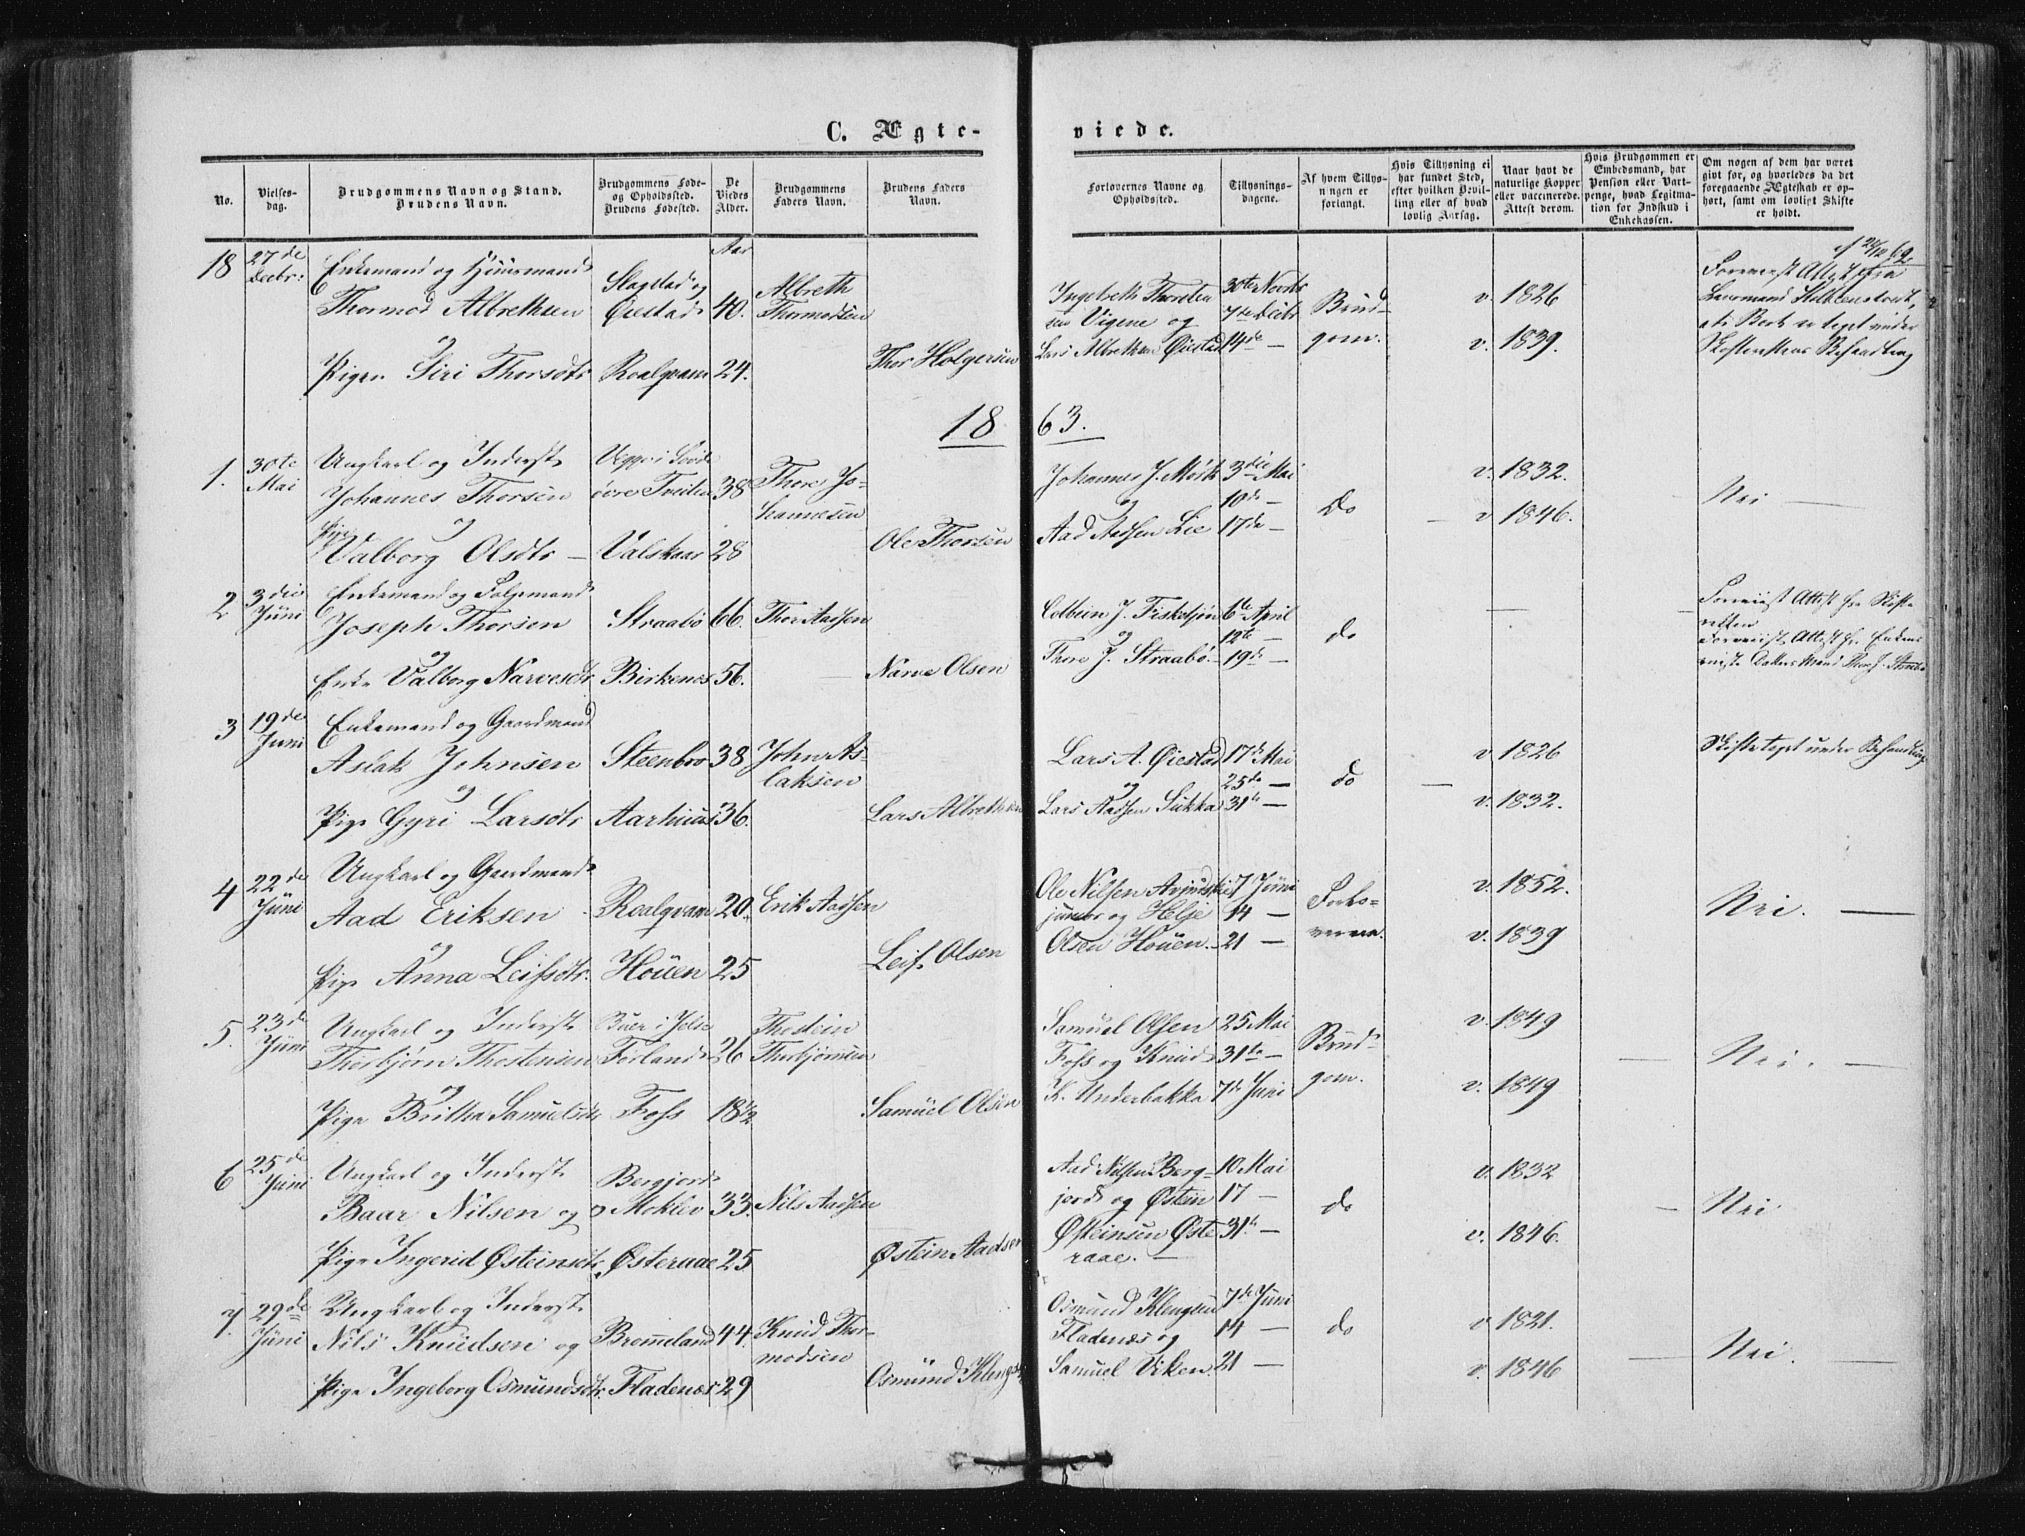 C. Ægte-
viede.
No.
Vielses-
dag.
Brudgommens Navn og Stand.
Brudens Navn.
Brudgommens Føde-
og Opholdssted.
Brudens Fødested.
De
Viedes
Alder.
Brudgommens
Faders Navn.
Brudens Faders
Navn.
Forlovernes Navne og
Opholdssted.
Tillysnings-
dagene.
Af hvem Tillys-
ningen er
forlangt.
Hvis Tillysning ei
har fundet Sted,
efter hvilken Bevil-
ling eller af hvad
lovlig Aarsag.
Naar havt de
naturlige Kopper
eller vaccinerede.
Attest derom.
Hvis Brudgommen er
Embedsmand, har
Pension eller Vart-
penge, hvad Legitima-
tion for Indskud i
Enkekassen.
Om nogen af dem har været
gift før, og hvorledes da det
foregaaende Ægteskab er op-
hørt, samt om lovligt Skifte
er holdt.
18
27de
Decbr:
Enkemand og Huusmand
Thormod Albrethsen
og
Pigen Siri Thorsdtr
Slagstad og
Øiestad
Roalqvam
Aar
40.
24.
Albreth
Thormodsen
Thor Holgersen
Ingebreth Thorsten
sen Vigene og
Lars Albrethsen Øiestad
30te Novbr
7de Decbr
14de —
Brud-
gom.
v. 1826
v. 1839.
Foreviist Attest fra
Lensmand
at Boet er taget under
Skifterettens Behandling
1863.
1.
30te
Mai
Ungkarl og Inderst
Johannes Thorsen
og
Pige Valborg Olsdtr —
Valskaar
38
28
Thore Jo-
hannesen
Ole Thorsen
Johannes J. Mørk
og
Aad Aadsen Lie
3die Mai
10de —
17de —
do
v. 1832.
v 1846.
Nei —
2
3die
Juni
Enkemand og Folgemand
Joseph Thorsen
og
Enke Valborg Narvesdtr
Straabø
Birkenes
66.
56.
Thor Aadsen
Narve Olsen
Colbein J. Fisketjøn
og
Thore J. Straabø
6te April
12te —
19de —
do
Foreviist Attest fra Skifte
retten
Foreviist Attest fra Enkens
Mand Thor J. Straabø
3
19de
Juni
Enkemand og Gaardmand
Aslak Johnsen
og
Pige Gyri Larsdtr
Steenbro
Aarhuus
38
36.
John As-
laksen
Lars Albrethsen
Lars A. Øiestad
og
Lars Aadsen Sukka
17de Mai
25de —
31te —
do
v 1826
v. 1832.
Skifte taget under Behandling
4
22de
Juni
Ungkarl og Gaardmand
Aad Eriksen
og
Pige Anna Leifsdtr.
Roalqvam
Høuen
20.
25
Erik Aadsen
Leif Olsen
Ole Nilsen
junior og Helje
Olsen Høuen.
7 Juni
14 —
21 —
Forlo-
verne.
v. 1852.
v. 1839
Nei. —
5.
23de
Juni
Ungkarl og Inderst
Thorbjørn Thostensen
og
Pige Britha Samuelsdtr
Buer i Jelse
Førland
Foss
26
18½
Thostein
Thorbjørnsen
Samuel Olsen
Samuel Olsen
Foss og Knud
K. Underbakka
25 Mai
31te —
7de Juni
Brud-
gom.
v. 1849
v. 1849
Nei. —
6
25de
Juni
Ungkarl og Inderst
Baar Nilsen og
Pige Ingerid Østeinsdtr
Bergjord
Moklev
Østeraae
33.
25
Nils Aadsen
Østein Aadsen
Aad Nilsen Berg-
jord og Østein
Østeinsen Øste
raae. —
10 Mai
17 —
31te —
do
v. 1832
v. 1846.
Nei
7.
29de
Juni
Ungkarl og Inderst
Nils Knudsen og
Pige Ingeborg Osmundsdtr
Bromeland
Fladenæs
44.
29
Knud Thor-
modsen
Osmund Klengsen
Osmund Klengsen
Fladenæs og
Samuel Viken.
7de Juni
14 —
21 —
do
v 1821.
v. 1846
Nei. —